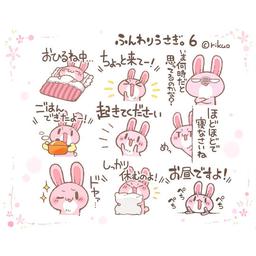 ふんわりうさぎ。6
©rikuo
おひるね中…
ちょっと来てー!
いま何時だと
思ってるのかな?
ごはん
できたよー!
起きてください
ほどほどで
寝なさいね
め。
ドヤァ
しっかり
休むのよ!
お昼ですよ!